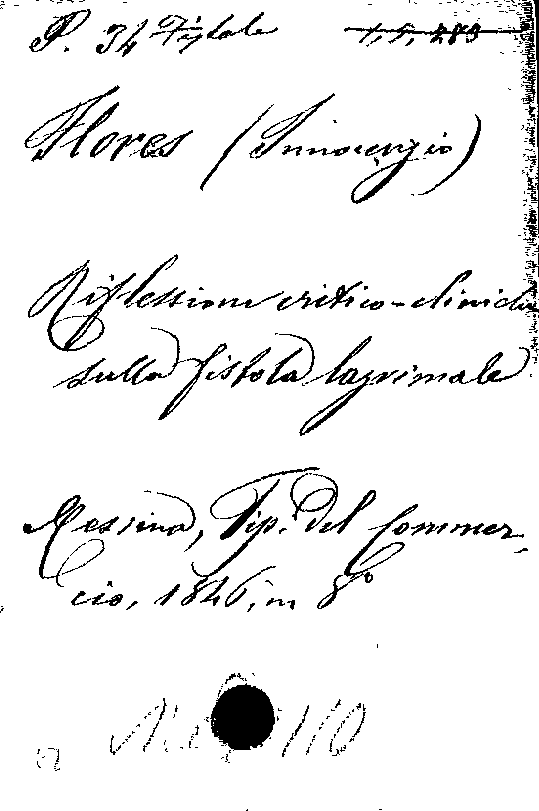 P. 34 Fistole 1, 5, 283
Flores (Innocenzio)
Riflessioni critico-cliniche
sulla fistola lagrimale
Messina, Tip. del Commer-
cio, 1846, in 8°
110